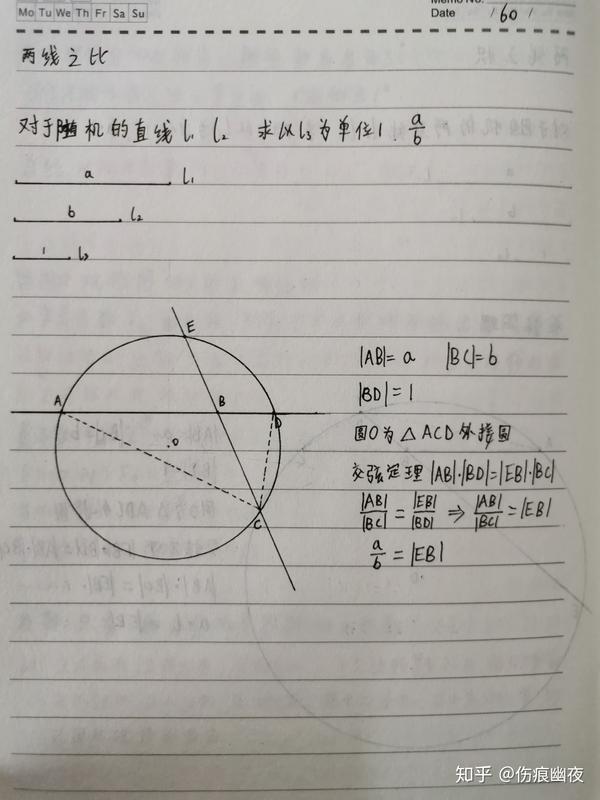 Mo Tu We Th Fr Sa Su
Memo No.
Date / 60 /
两线之比
对于随机的直线 l₁ l₂ 求以 l₃ 为单位1. a/b
a l₁
b l₂
1 l₃
E
A B D
O
C
|AB|=a |BC|=b
|BD|=1
圆O为△ACD外接圆
交弦定理 |AB|·|BD|=|EB|·|BC|
|AB|/|BC| = |EB|/|BD| ⇒ |AB|/|BC| = |EB|
a/b = |EB|
知乎 @伤痕幽夜